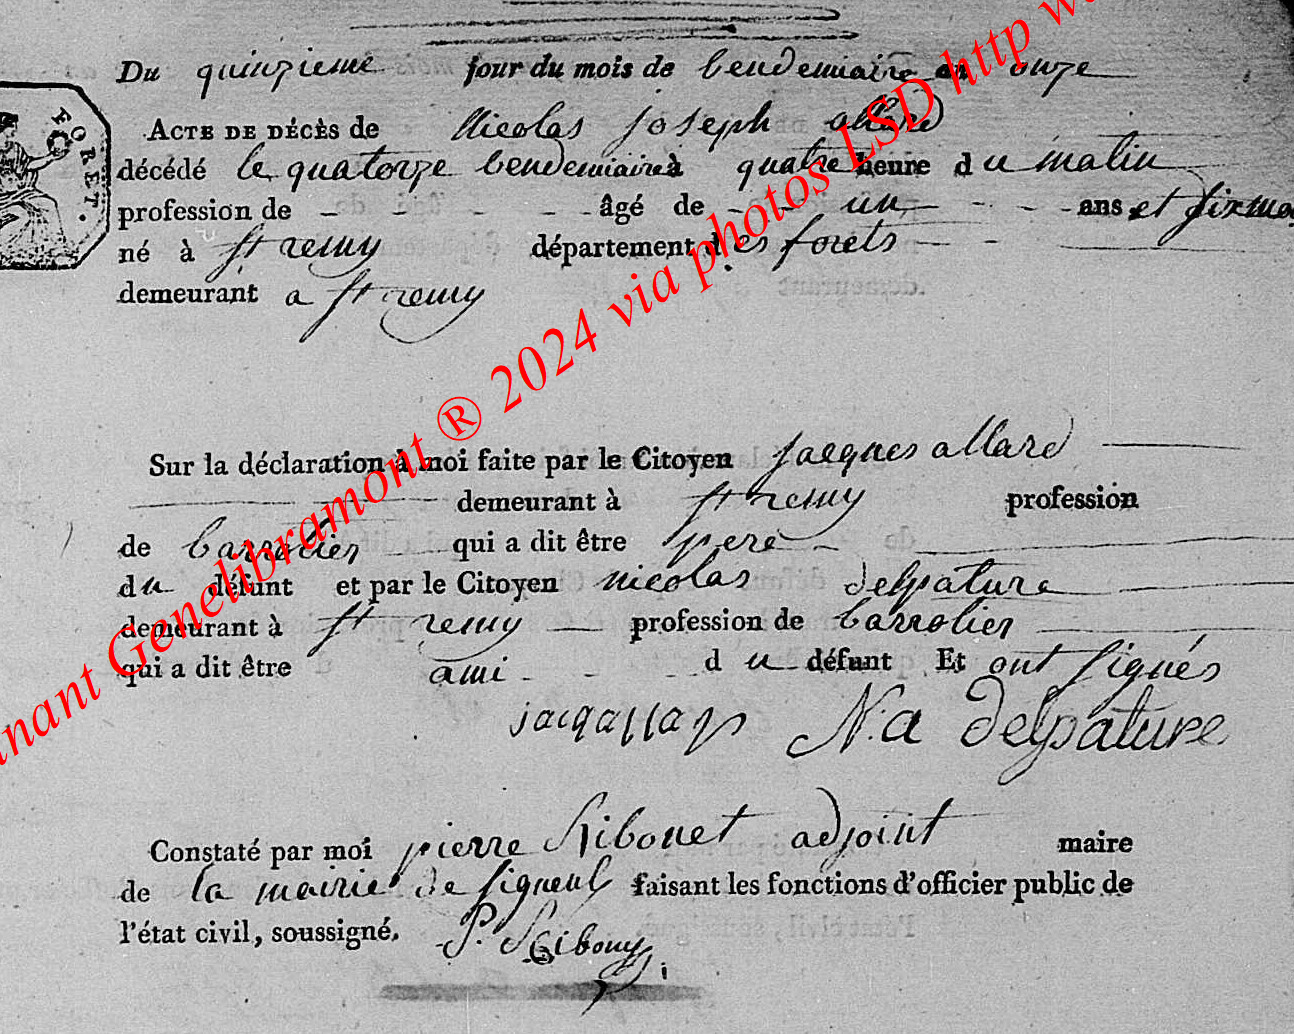 Du quinzieme jour du mois de bendemiaire an onze
ACTE DE DÉCÈS de Nicolas joseph allard
décédé le quatorze bendemiaire à quatre heure du matin
profession de - - - - - - âgé de - - un - - - ans et six moi
né à st remy département des forets
demeurant a st remy
FORET.
Sur la déclaration à moi faite par le Citoyen jacques allard
demeurant à st remy profession
de barrotier qui a dit être pere
du défunt et par le Citoyen nicolas delpature
demeurant à st remy profession de barrotier
qui a dit être ami du défunt Et ont signés
N.a delpature
Constaté par moi pierre adjoint maire
de la mairie de signeul faisant les fonctions d'officier public de
l'état civil, soussigné. P.
nant Genelibramont ® 2024 via photos LSD http w